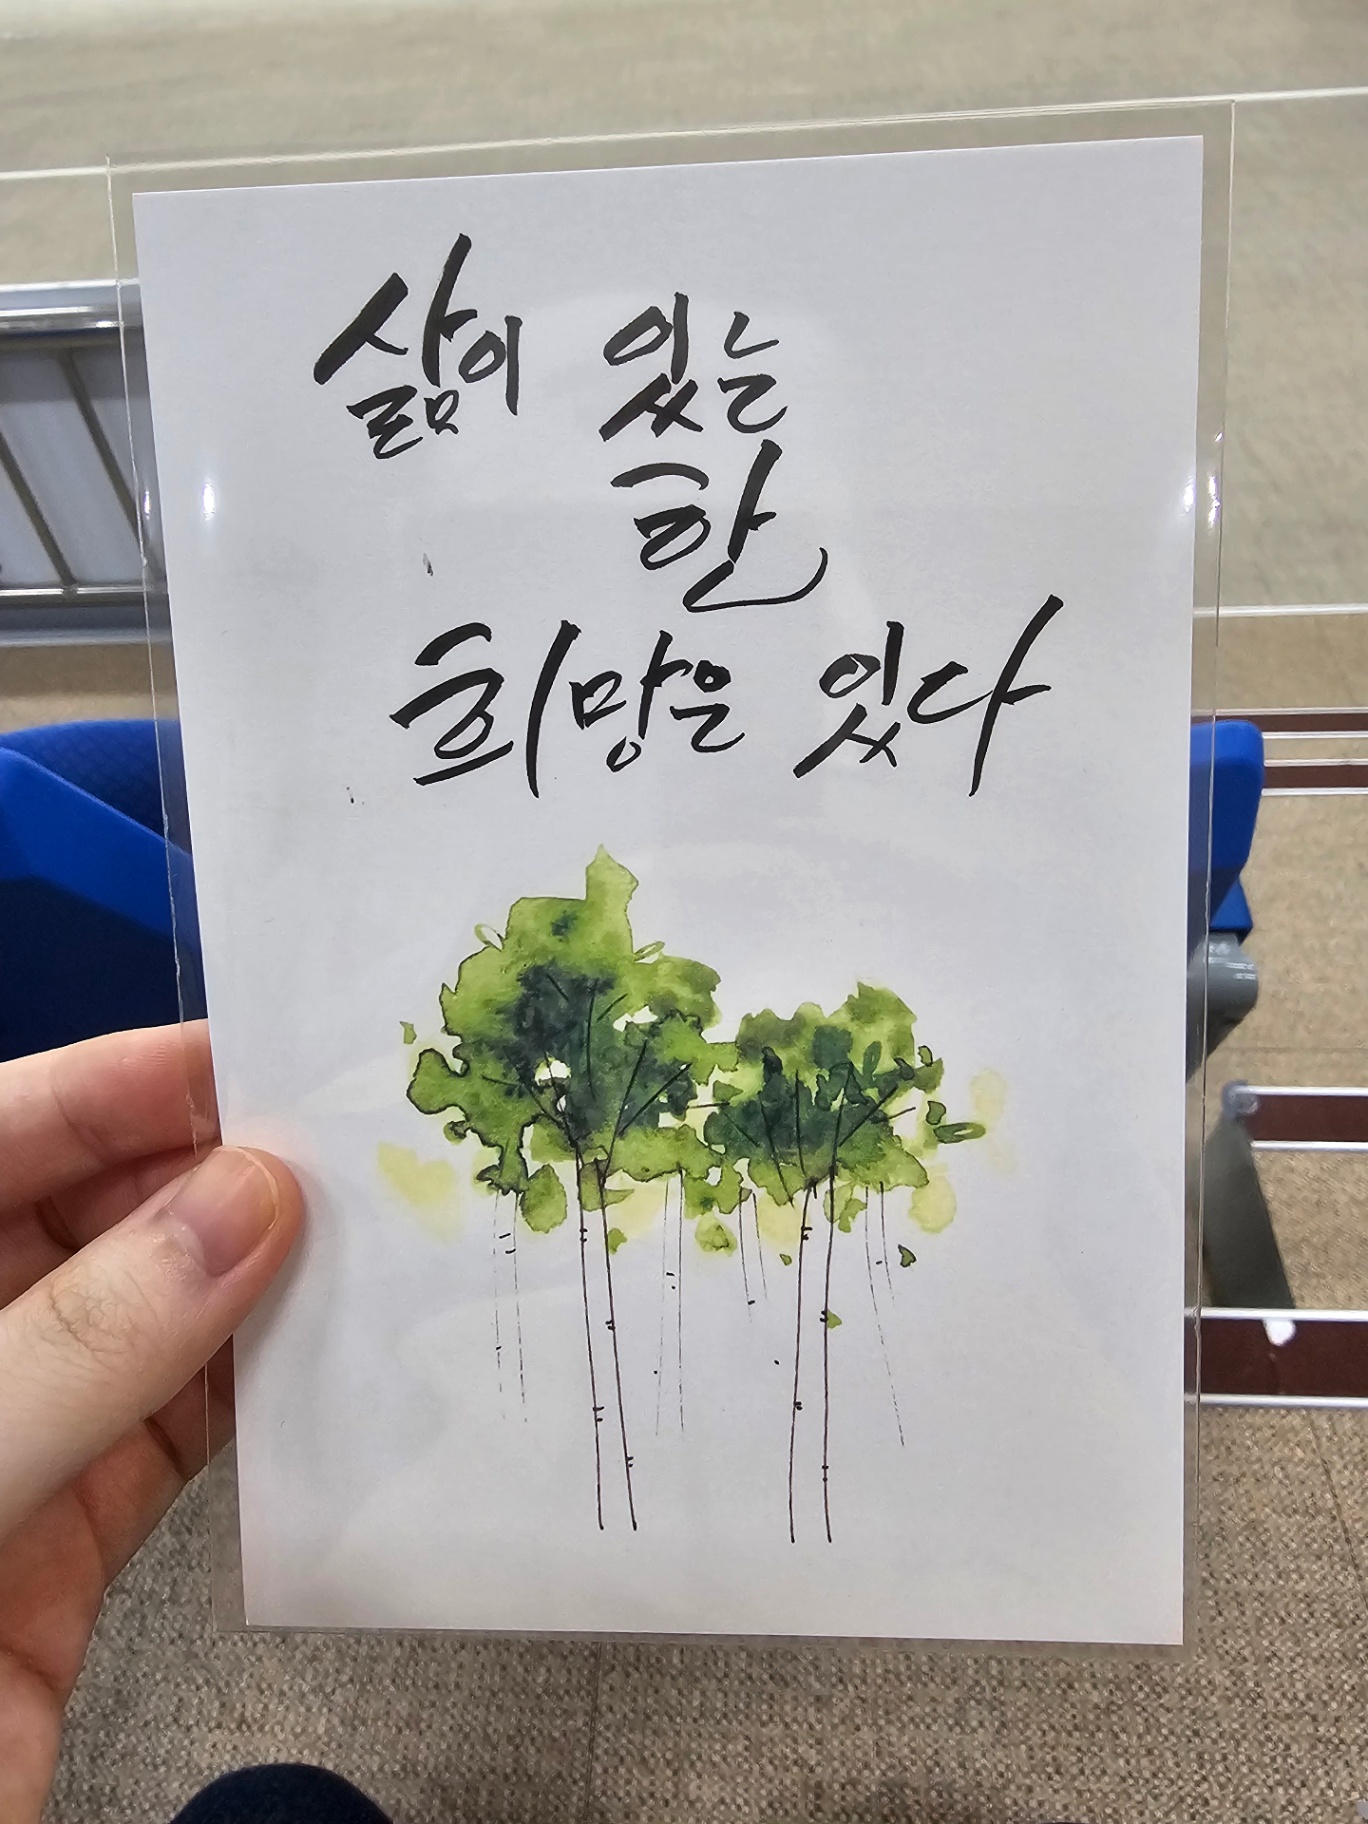 삶이 있는
한
희망은 있다